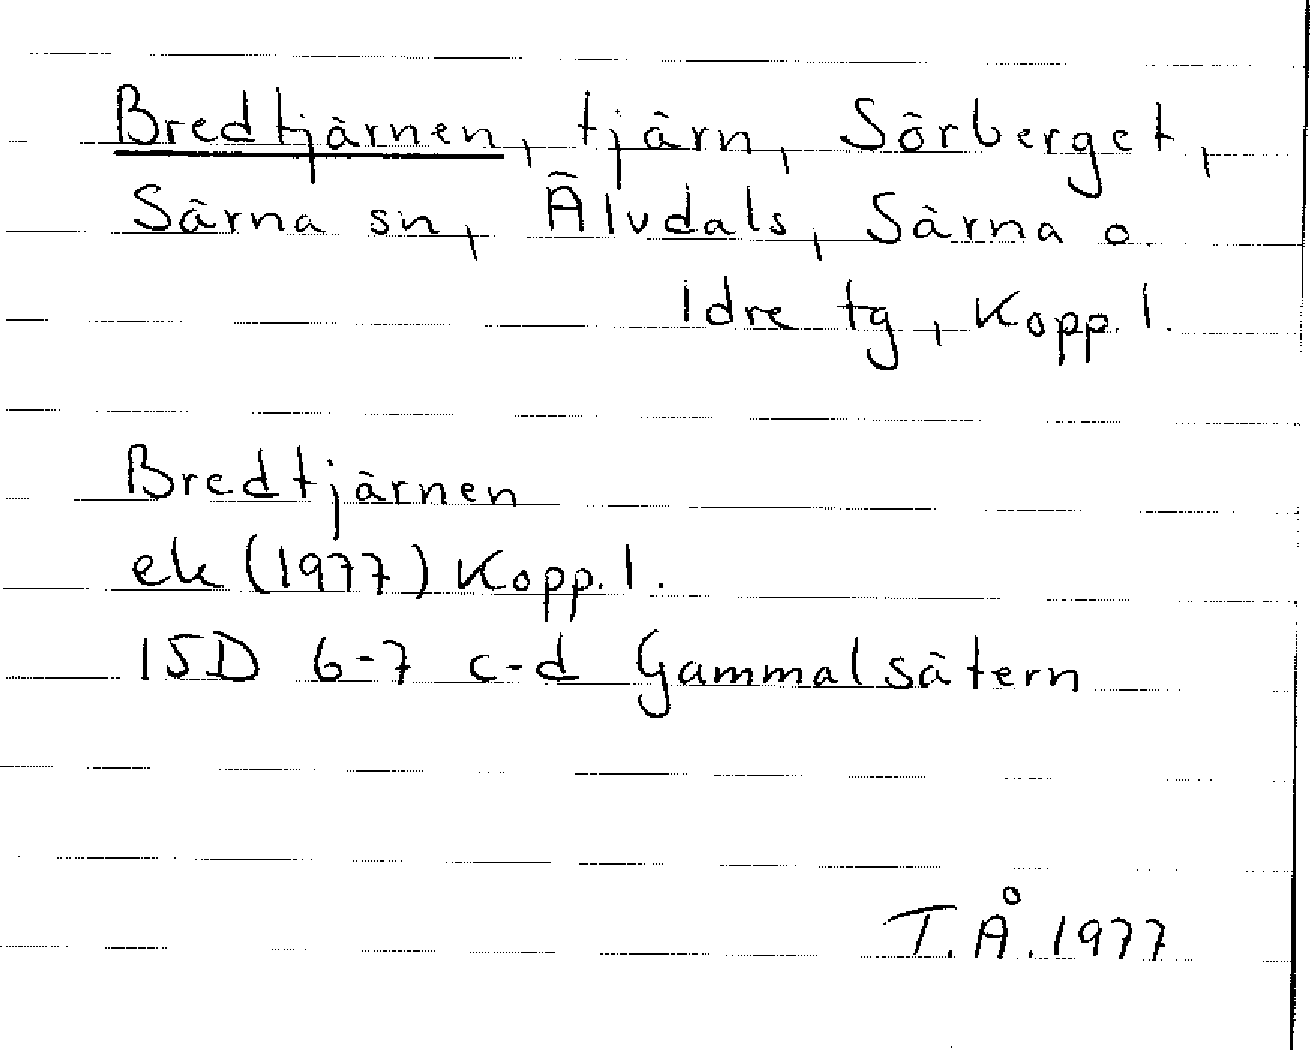 Bredtjärnen, tjärn, Sörberget,
Särna sn, Älvdals, Särna o.
Idre tg, Kopp. l.
Bredtjärnen
ek (1977) Kopp. l.
15D 6-7 c-d Gammalsätern
T.Å. 1977